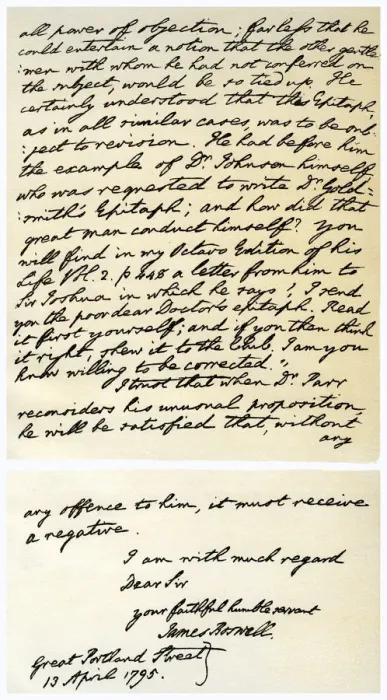 all power of objection; far less that he
could entertain a notion that the other gentle
:men with whom he had not conferred on
the subject, would be so tied up. He
certainly understood that the Epitaph,
as in all similar cases, was to be sub-
:ject to revision. He had before him
the example of Dr. Johnson himself,
who was requested to write Dr. Gold-
:smith's Epitaph; and how did that
great man conduct himself? You
will find in my Octavo Edition of his
Life Vol. 2. p 448 a letter from him to
Sir Joshua in which he says, "I send
you the poor dear Doctor's epitaph. Read
it first yourself; and if you then think
it right, shew it to the Club. I am you
know willing to be corrected."
I trust that when Dr. Parr
reconsiders his unusual proposition,
he will be satisfied that, without
any
any offence to him, it must receive
a negative.
I am with much regard
Dear Sir
your faithful humble servant
James Boswell.
Great Portland Street
13 April 1795.